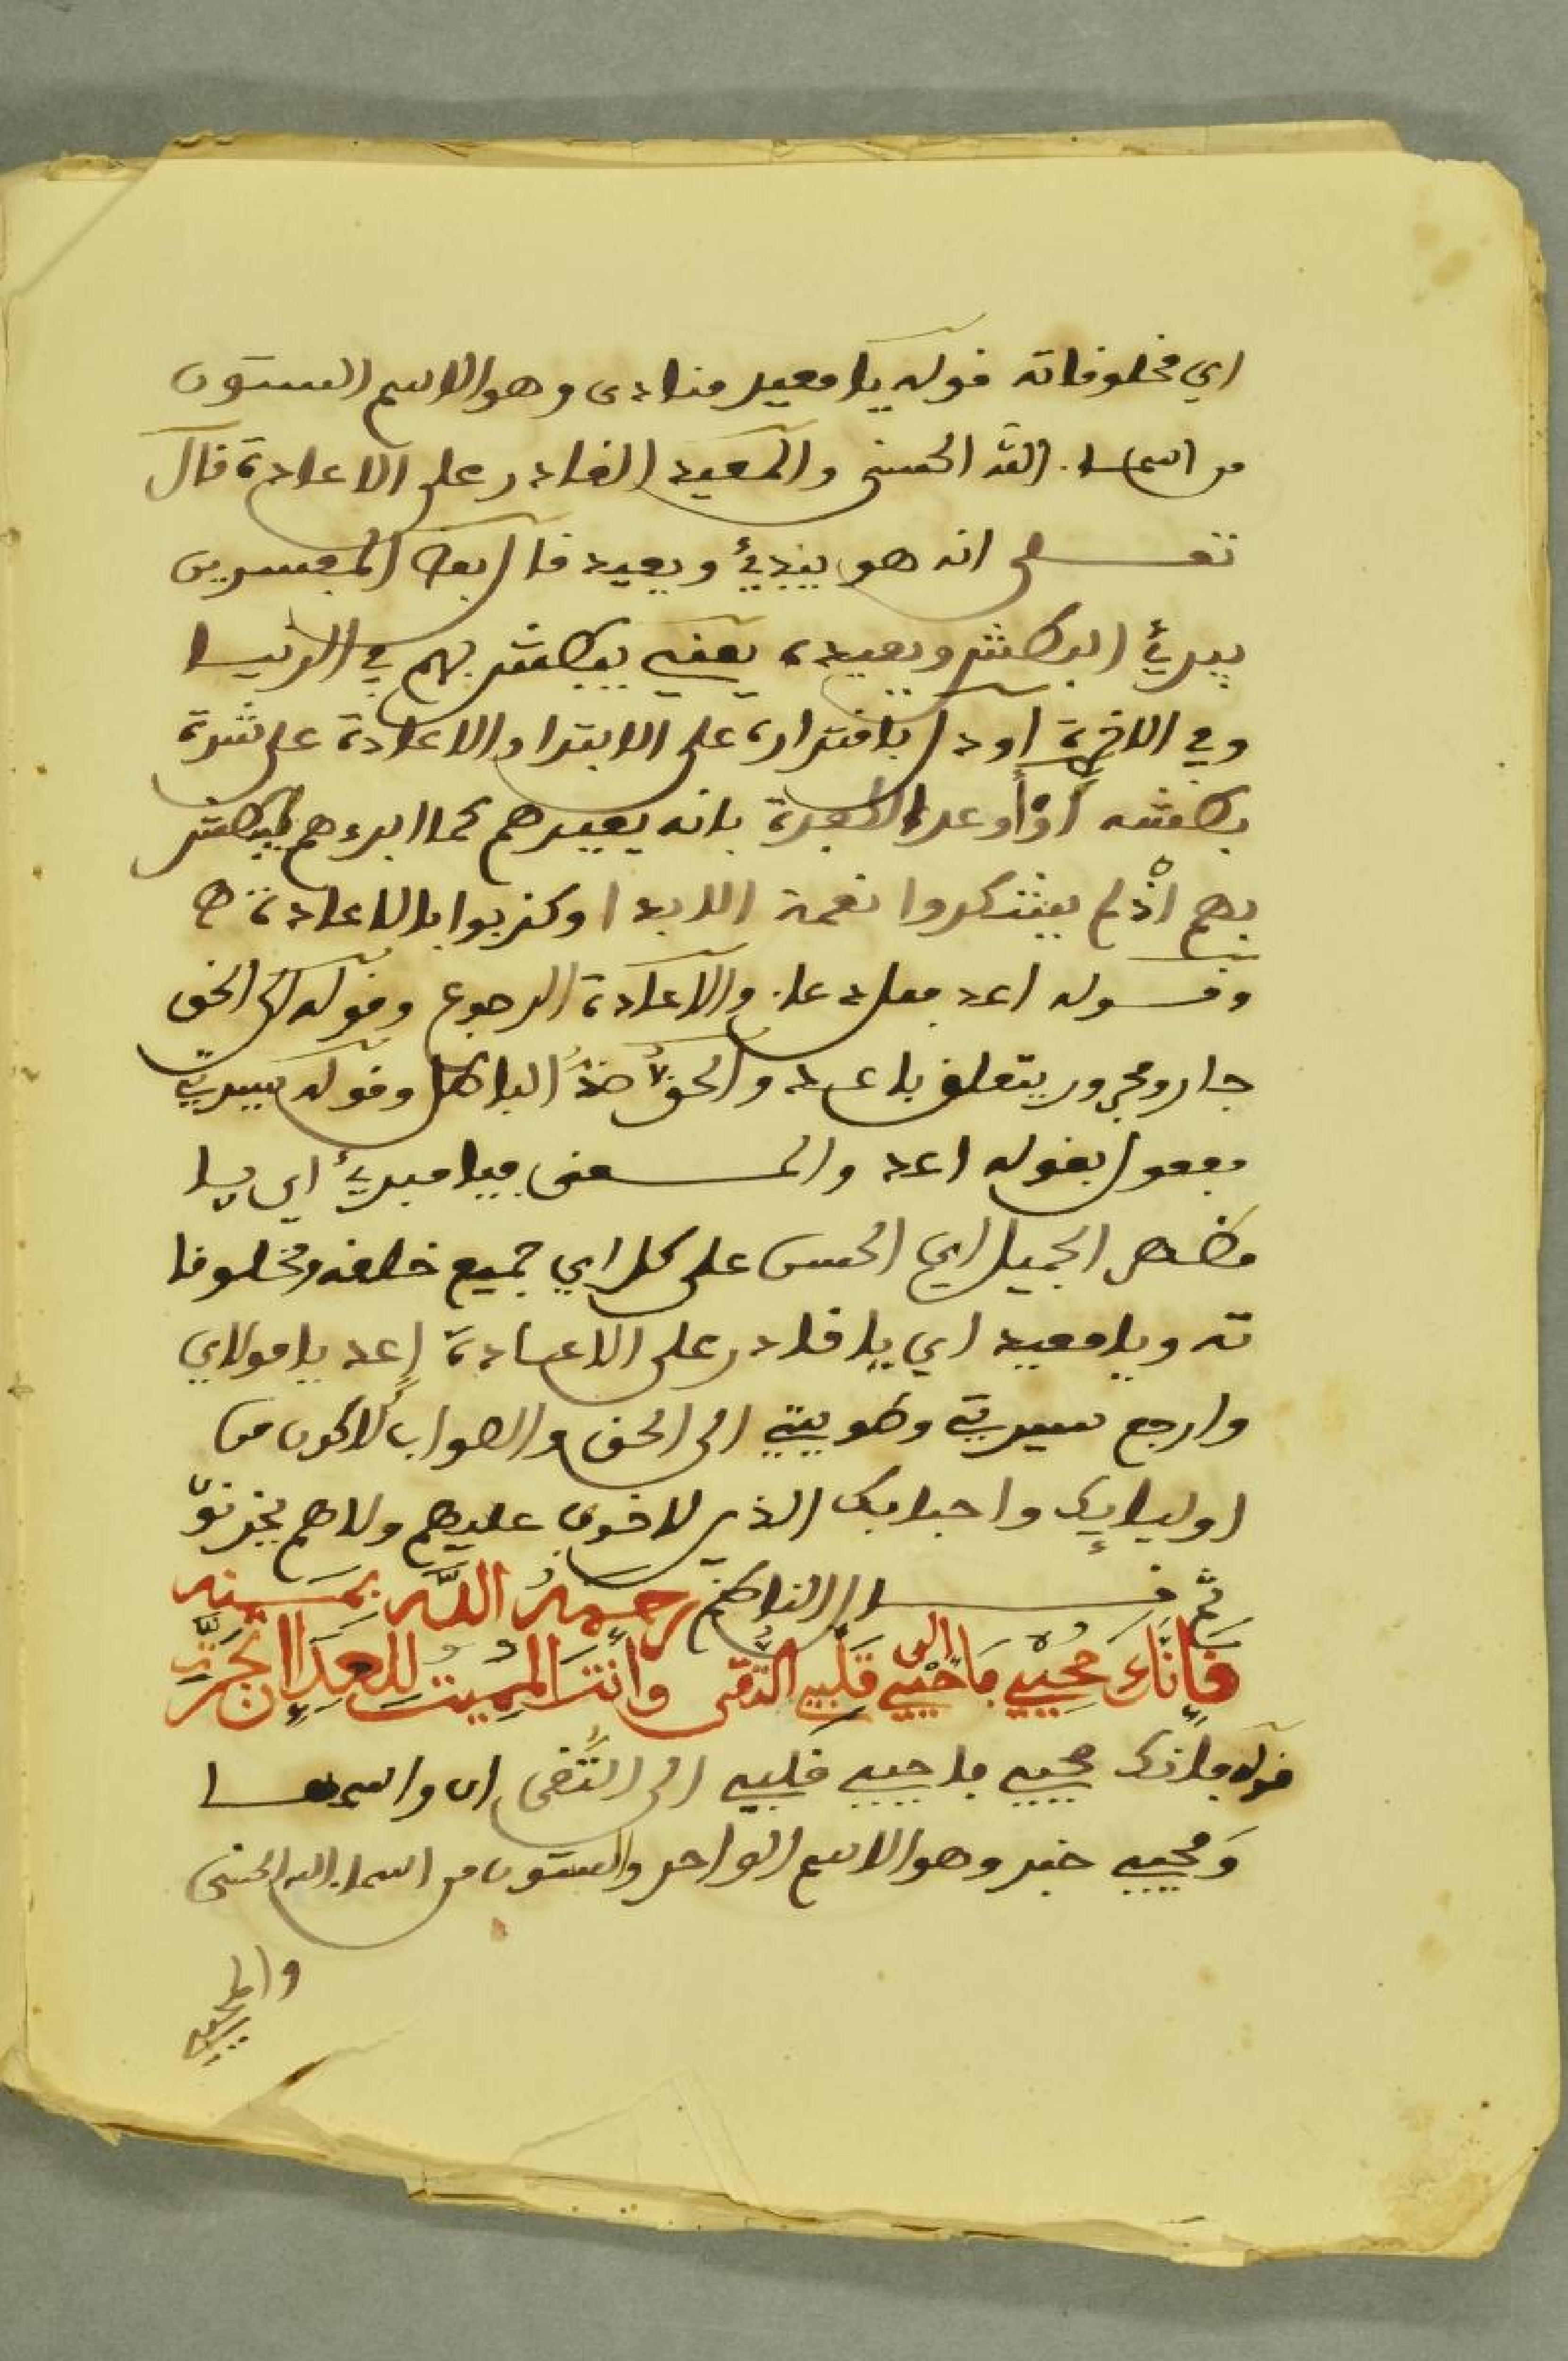 اي مخلوقاته قوله يا معيد منادى وهو الاسم الستون
من اسماء الله الحسنى والمعيد القادر على الاعادة قال
تعلى انه هو يبدئ ويعيد قال بعض المفسرين
يبدئ البطش ويعيده يعني يبطش بهم في الدنيا
وفي الاخرة او دل باقتداره على الابتدا والاعادة على شدة
بطشه أو أوعد الكفرة بانه يعيدهم كما ابدءهم ليبطش
بهم اذ لم يشكروا نعمة الابدا وكذبوا بالاعادة ص
وقوله اعد فعل دعاء والاعادة الرجوع وقوله الى الحق
جار ومجرور يتعلق باعد والحق ضد الباطل وقوله سيرتي
مفعول بقوله اعد والمعنى فيا مبدئ اي يا
مظهر الجميل اي الحسن على كل اي جميع خلقه ومخلوقا
ته ويا معيد اي يا قادر على الاعادة اعد يا مولاي
وارجع سيرتي وطويتي الى الحق والصواب لاكون من
اوليايك واحبابك الذي لا خوف عليهم ولا هم يحزنون
ثم قال الناظم رحمه الله بمنه
فإنك محيي فاحيي قلبي الى التقى وأنت المميت للعدا
قوله فانك محيي فاحيي قلبي الى التقى ان واسمها
ومحيي خبر وهو الاسم الواحد والستون من اسماء الله الحسنى
والمحيي